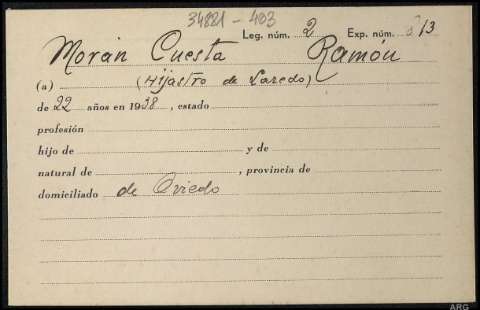 34821 - 403
Leg. núm. 2 Exp. núm. 313
Morán Cuesta Ramón
(a) (Hijastro de Laredo)
de 22 años en 1938, estado
profesión
hijo de y de
natural de , provincia de
domiciliado de Oviedo
ARG